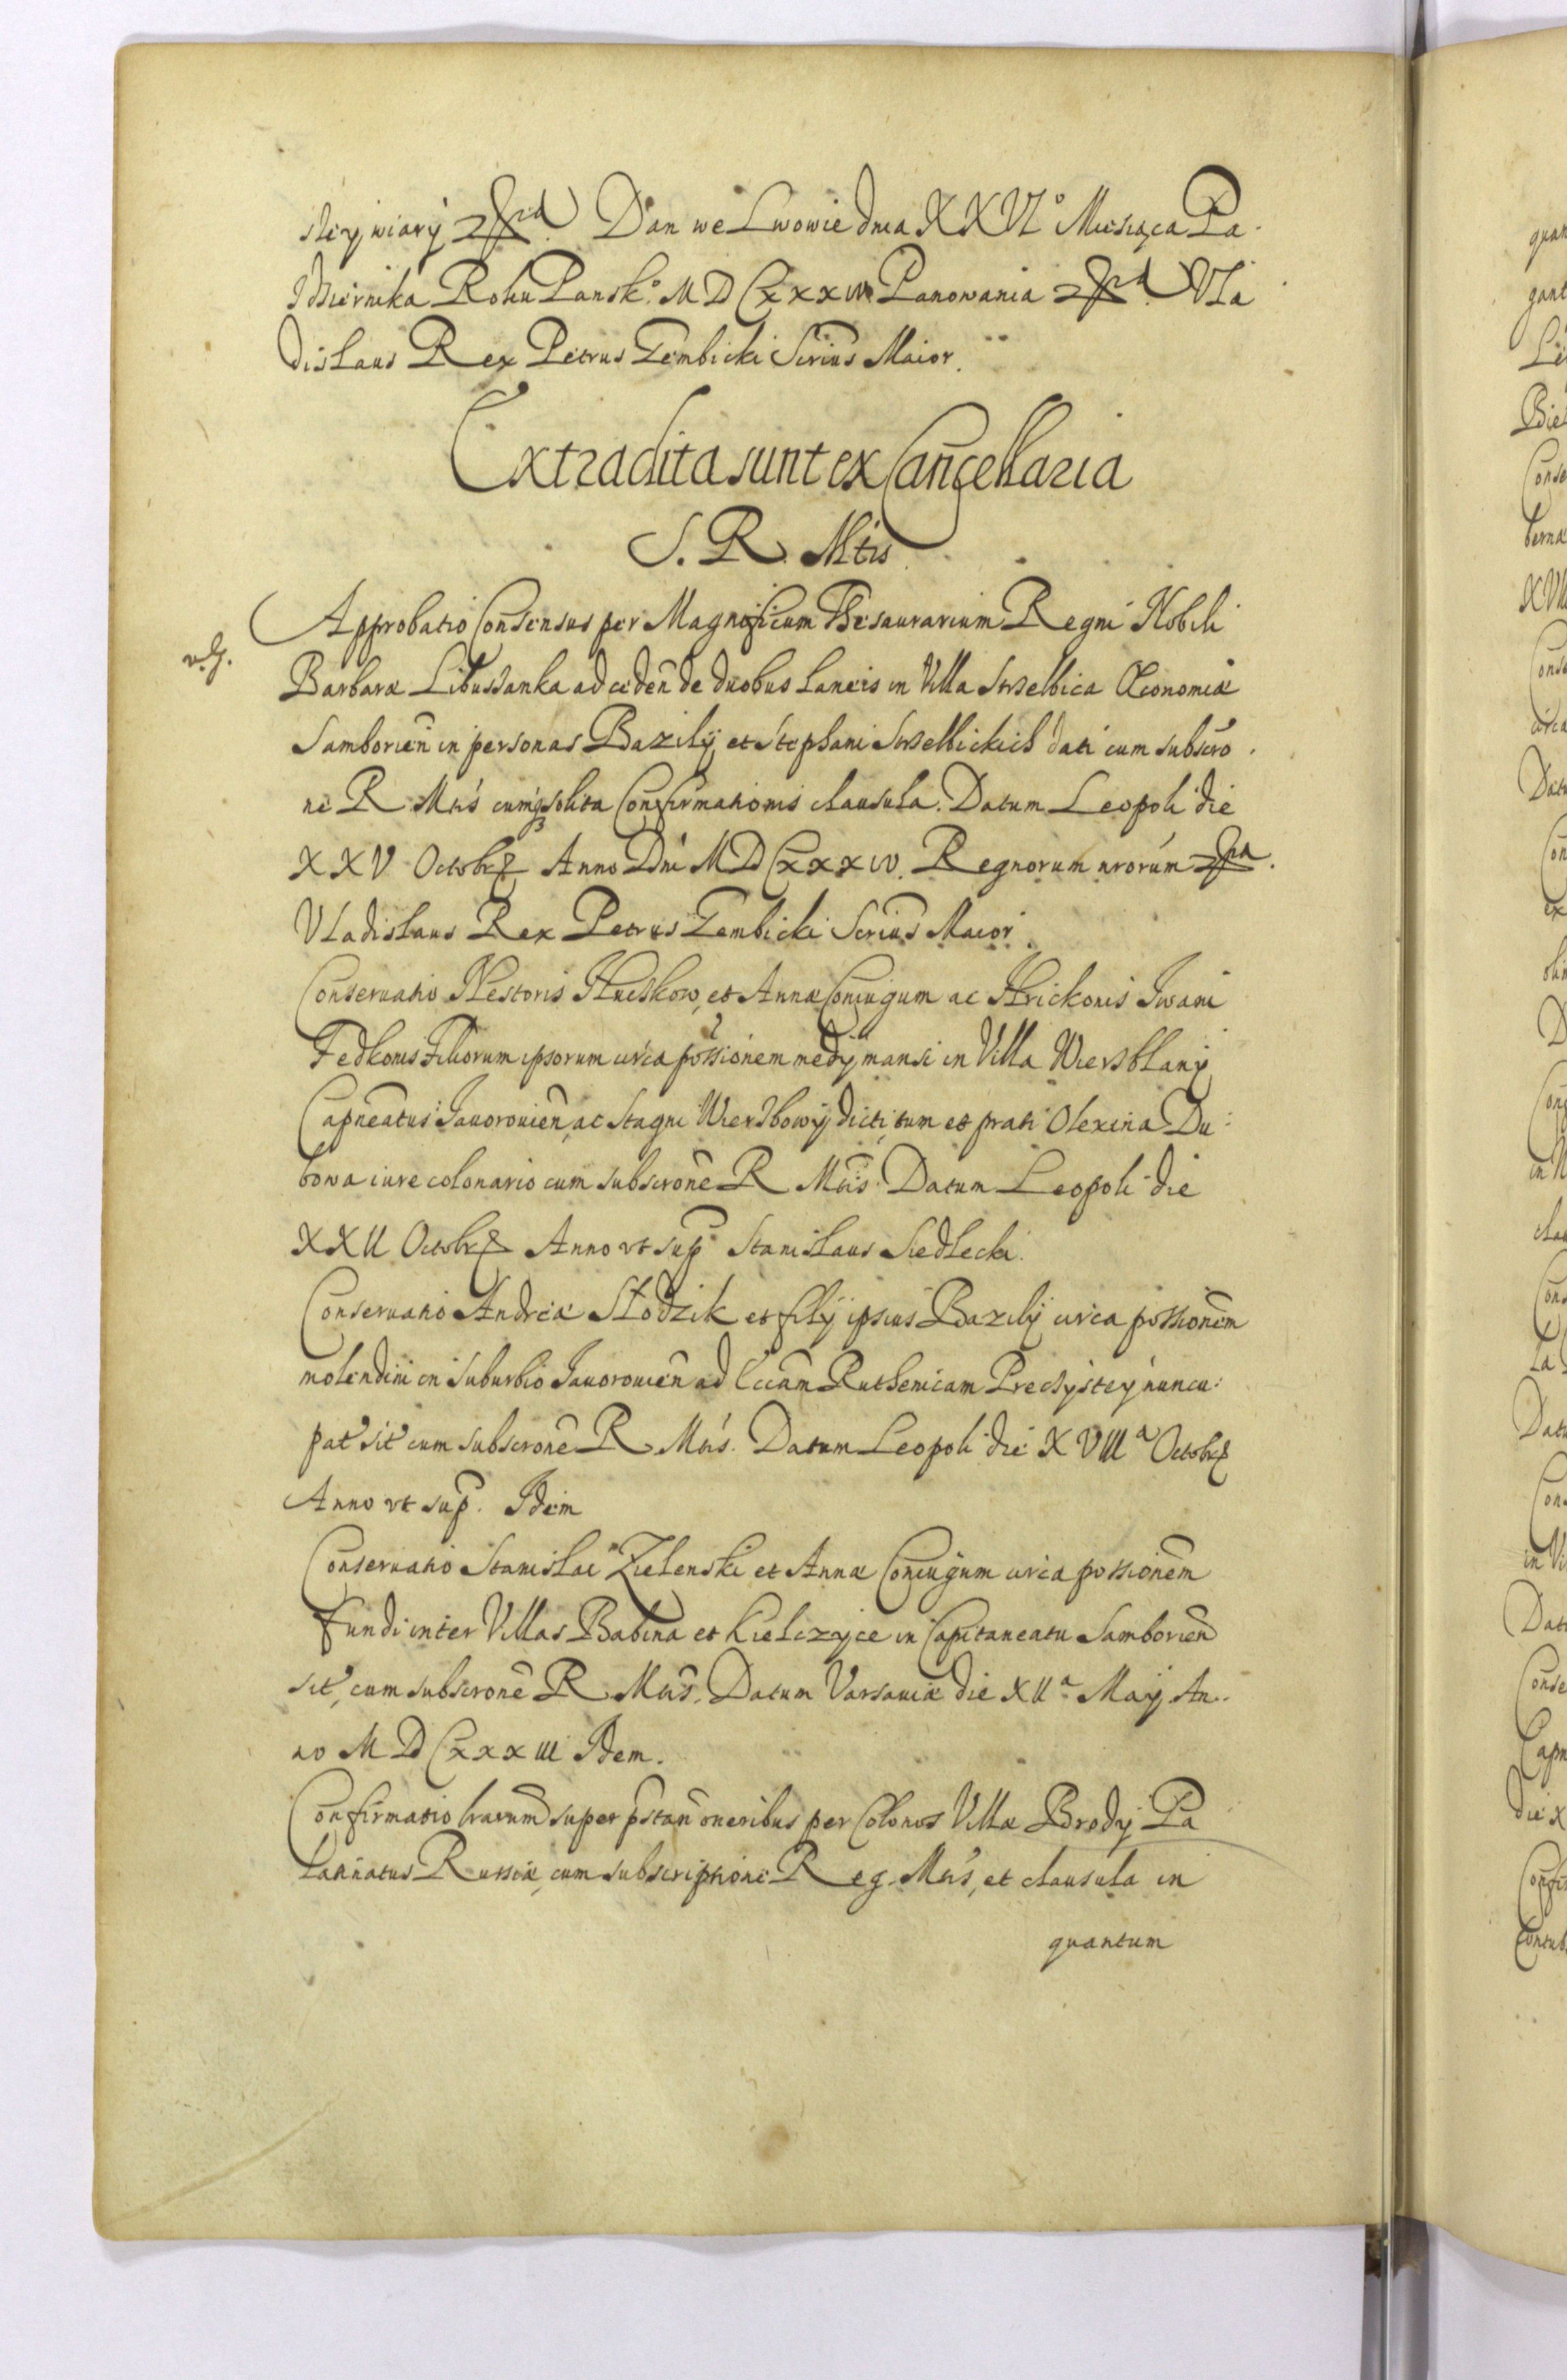 sney wiary etc. Dan we Lwowie dnia XXVI° Miesiąca Pa
zdziernika Roku Pansk° MDCxxxiv. Panowania etc. Vla
dislaus Rex Petrus Gembicki Scrius Maior.
Extradita sunt ex Cancellaria
S. R. Mtis
Approbatio Consensus per Magnificum Thesaurarium Regni Nobili
Barbaræ Libussanka ad ceden de duobus Laneis in Villa Strzelbica Œconomiæ
Samborien in personas Bazilij et Stephani Strzelbickich dati cum subscro
ne R Mtis cumq solita Confirmationis clausula. Datum Leopoli die
XXV Octobr Anno Dni MDCxxxiv. Regnorum nrorum etc.
Vladislaus Rex Petrus Gembicki Scrius Maior.
Conseruatio Nestoris Huczkow, et Annæ Coniugum ac Hrickonis Iwani
Fedkonis Filiorum ipsorum circa possionem medij mansi in Villa Wierzblany
Capneatus Jauorouien, ac Stagni Wierzbowy dicti, tum et prati Olexina Du
bowa iure colonario cum subscrone R Mtis. Datum Leopoli die
XXII Octobr Anno vt sup Stanislaus Siedlecki.
Conseruatio Andreæ Słodzik et filij ipsius Bazilij circa possionem
molendini in suburbio Jauorouien ad Eccam Ruthenicam Preczystey nuncu
pat sit cum subscrone R Mtis. Datum Leopoli die XVIIIa Octobr
Anno vt sup. Idem
Conseruatio Stanislai Zielenski et Annæ Coniugum circa possionem
fundi inter Villas Babina et Kielczyce in Capitaneatu Samborien
sit, cum subscrone R Mtis. Datum Varsauiæ die XIIa Maij An
no MDCxxxiii Idem.
Confirmatio lrarum super pstan oneribus per Colonos Villæ Brody Pa
latinatus Russiæ, cum subscriptione Reg. Mtis, et clausula in
quantum